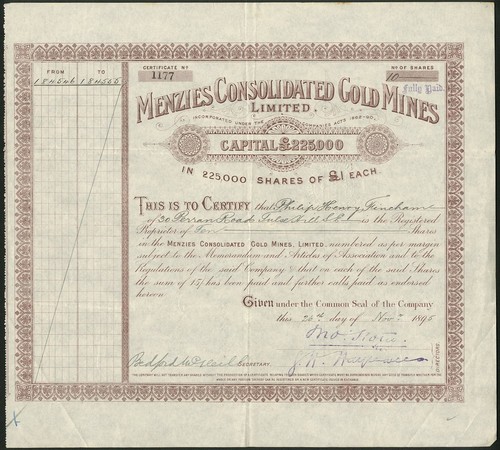 CERTIFICATE No
1177
No OF SHARES
10
Fully Paid.
FROM TO
184546 184555
MENZIES CONSOLIDATED GOLD MINES
LIMITED.
INCORPORATED UNDER THE COMPANIES ACTS 1862-90.
CAPITAL £225,000
IN 225,000 SHARES OF £1 EACH
THIS IS TO CERTIFY that Philip Henry Fincham
of 30 Road Tulse Hill S.E. is the Registered
Proprietor of Ten Shares
in the MENZIES CONSOLIDATED GOLD MINES, LIMITED, numbered as per margin
subject to the Memorandum and Articles of Association and to the
Regulations of the said Company & that on each of the said Shares
the sum of 15/- has been paid and further calls paid as endorsed
hereon
Given under the Common Seal of the Company
this 26th day of Novr 1895
DIRECTORS
SECRETARY.